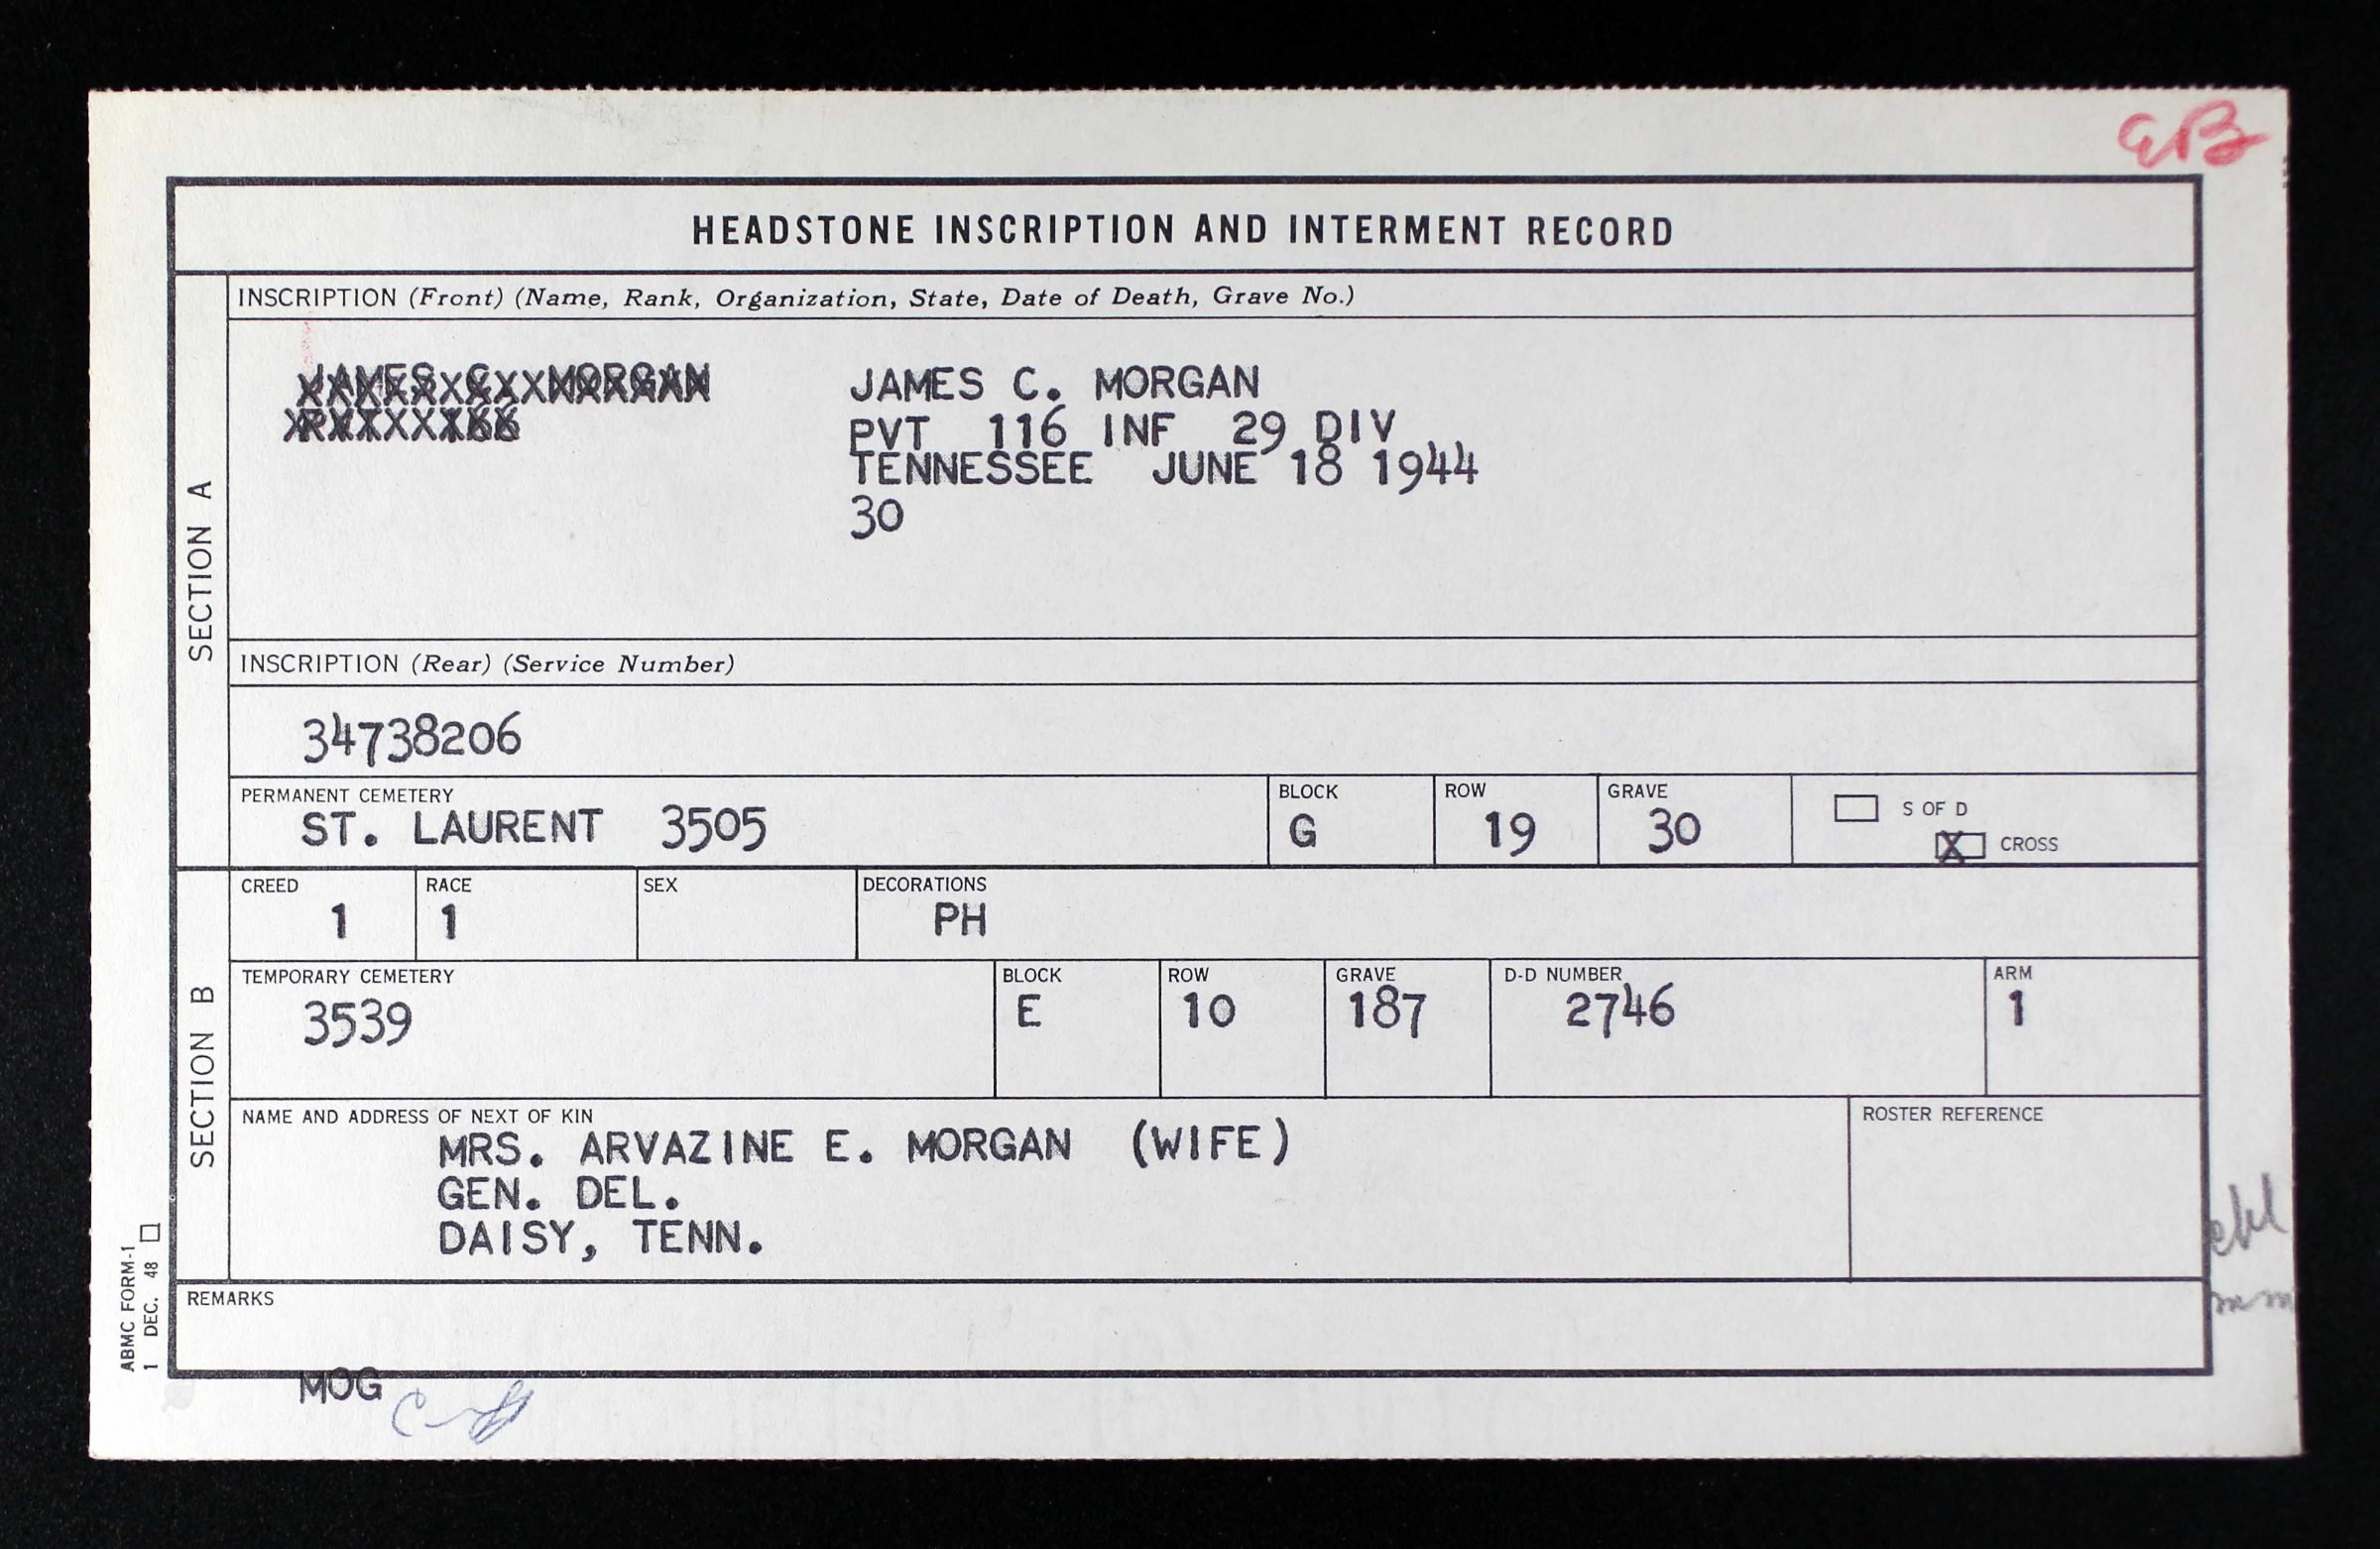 EB
HEADSTONE INSCRIPTION AND INTERMENT RECORD
SECTION A
INSCRIPTION (Front) (Name, Rank, Organization, State, Date of Death, Grave No.)
JAMES C. MORGAN
JAMES C. MORGAN
PVT 116 INF 29 DIV
TENNESSEE JUNE 18 1944
30
INSCRIPTION (Rear) (Service Number)
34738206
PERMANENT CEMETERY
ST. LAURENT 3505
BLOCK
G
ROW
19
GRAVE
30
S OF D
X CROSS
SECTION B
CREED
1
RACE
1
SEX
DECORATIONS
PH
TEMPORARY CEMETERY
3539
BLOCK
E
ROW
10
GRAVE
187
D-D NUMBER
2746
ARM
1
NAME AND ADDRESS OF NEXT OF KIN
MRS. ARVAZINE E. MORGAN (WIFE)
GEN. DEL.
DAISY, TENN.
ROSTER REFERENCE
REMARKS
ABMC FORM-1
1 DEC. 48
MOG